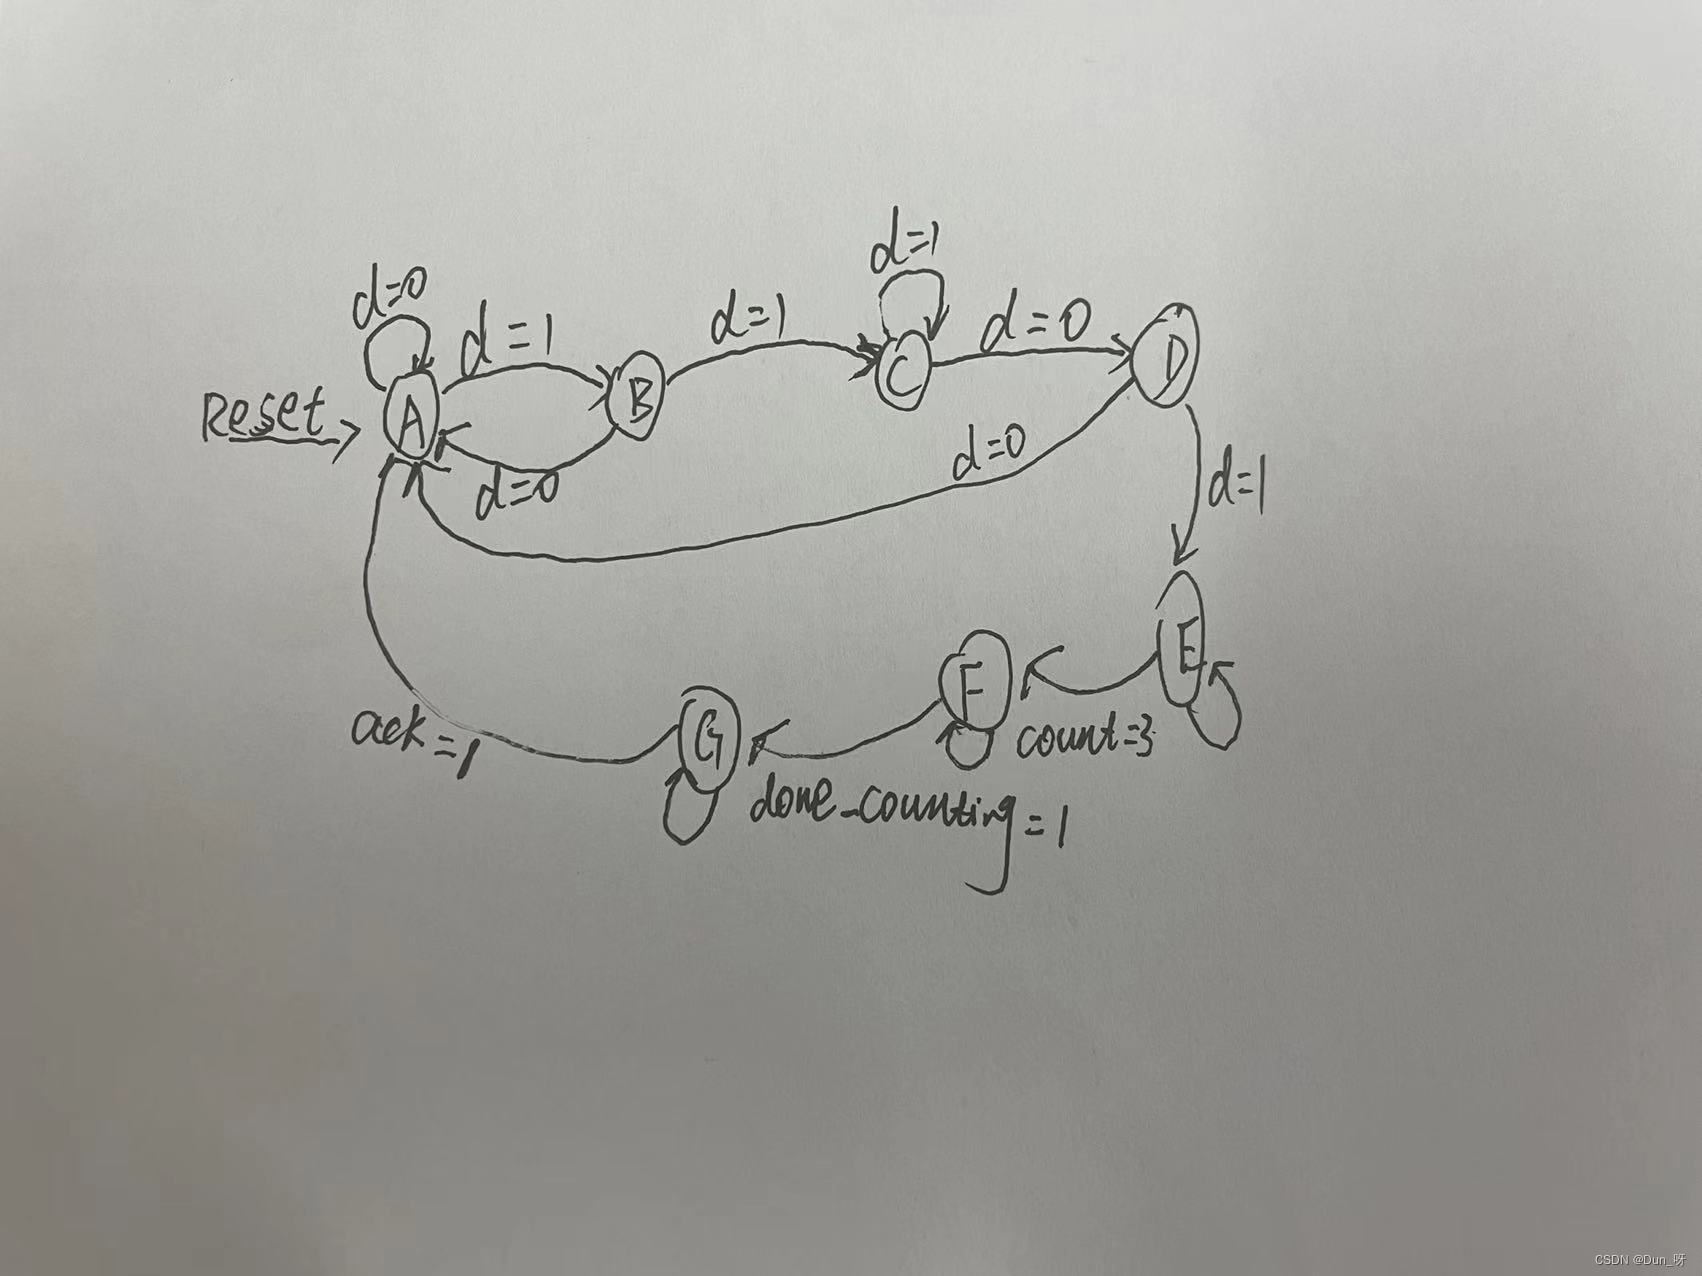 d=1
d=0
d=1
d=1
d=0
Reset
A
B
C
D
d=0
d=0
d=1
E
F
G
count=3
ack=1
done_counting=1
CSDN @Dun_呀